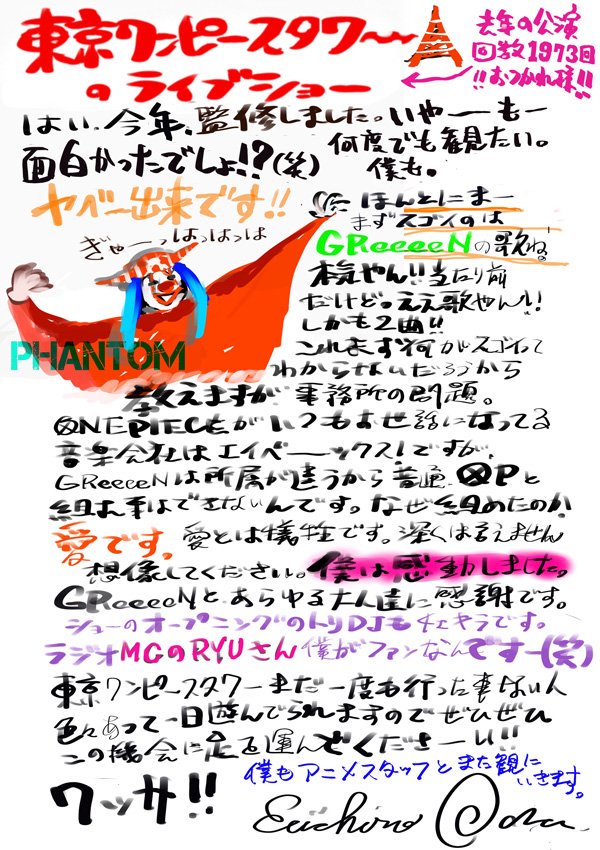 東京ワンピースタワー
のライブショー
去年の公演
回数1973回
!!おつかれ様!!
はい。今年、監修しました。いやーーもー
面白かったでしょ!?(笑)
何度でも観たい。
僕も。
ヤベー出来です!!
ぎゃーっはっはっは
PHANTOM
ほんとにまー
まずスゴイのは
GReeeeNの歌ね。
本気やん!!当たり前
だけど。ええ歌やん!!
しかも2曲!!
これまず何がスゴイって
わからない人だろうから
教えますが事務所の問題。
ONE PIECEがいつもお世話になってる
音楽会社はエイベーーックス!ですが、
GReeeeNは所属が違うから普通、OPと
組む事はできないんです。なぜ組めたのか
愛です。愛とは犠牲です。深くは言えません
想像してください。僕は感動しました。
GReeeeNと、あらゆる大人達に感謝です。
ショーのオープニングのトリDJもチェキラです。
ラジオMCのRYUさん僕がファンなんですー(笑)
東京ワンピースタワーまだ一度も行った事ない人
色々あって一日遊んでられますのでぜひぜひ
この機会に足を運んでくださーい!!
僕もアニメスタッフとまた観に
いきます。
ワッサ!!
Eiichiro Oda